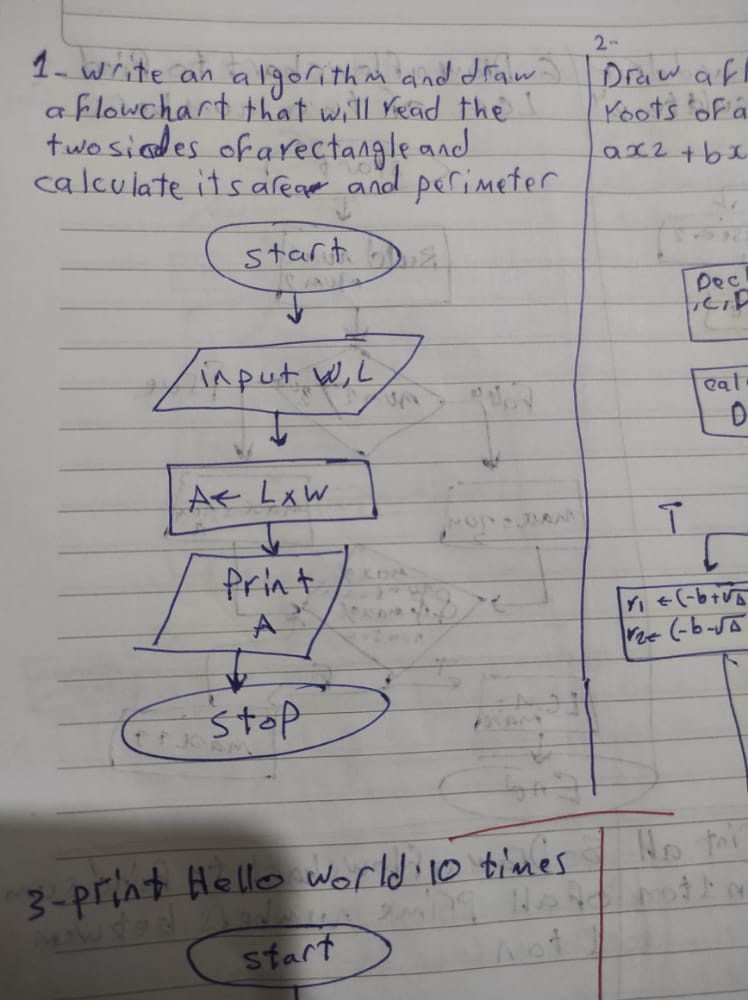 1- write an algorithm and draw
a flowchart that will read the
two sides of a rectangle and
calculate its area and perimeter
start
input W, L
A← L x W
Print
A
stop
2-
Draw a fl
roots of a
ax2 + bx
Decl
,c,D
cal
D
T
r1 ←(-b+√Δ
r2← (-b-√Δ
3-print Hello world 10 times
start